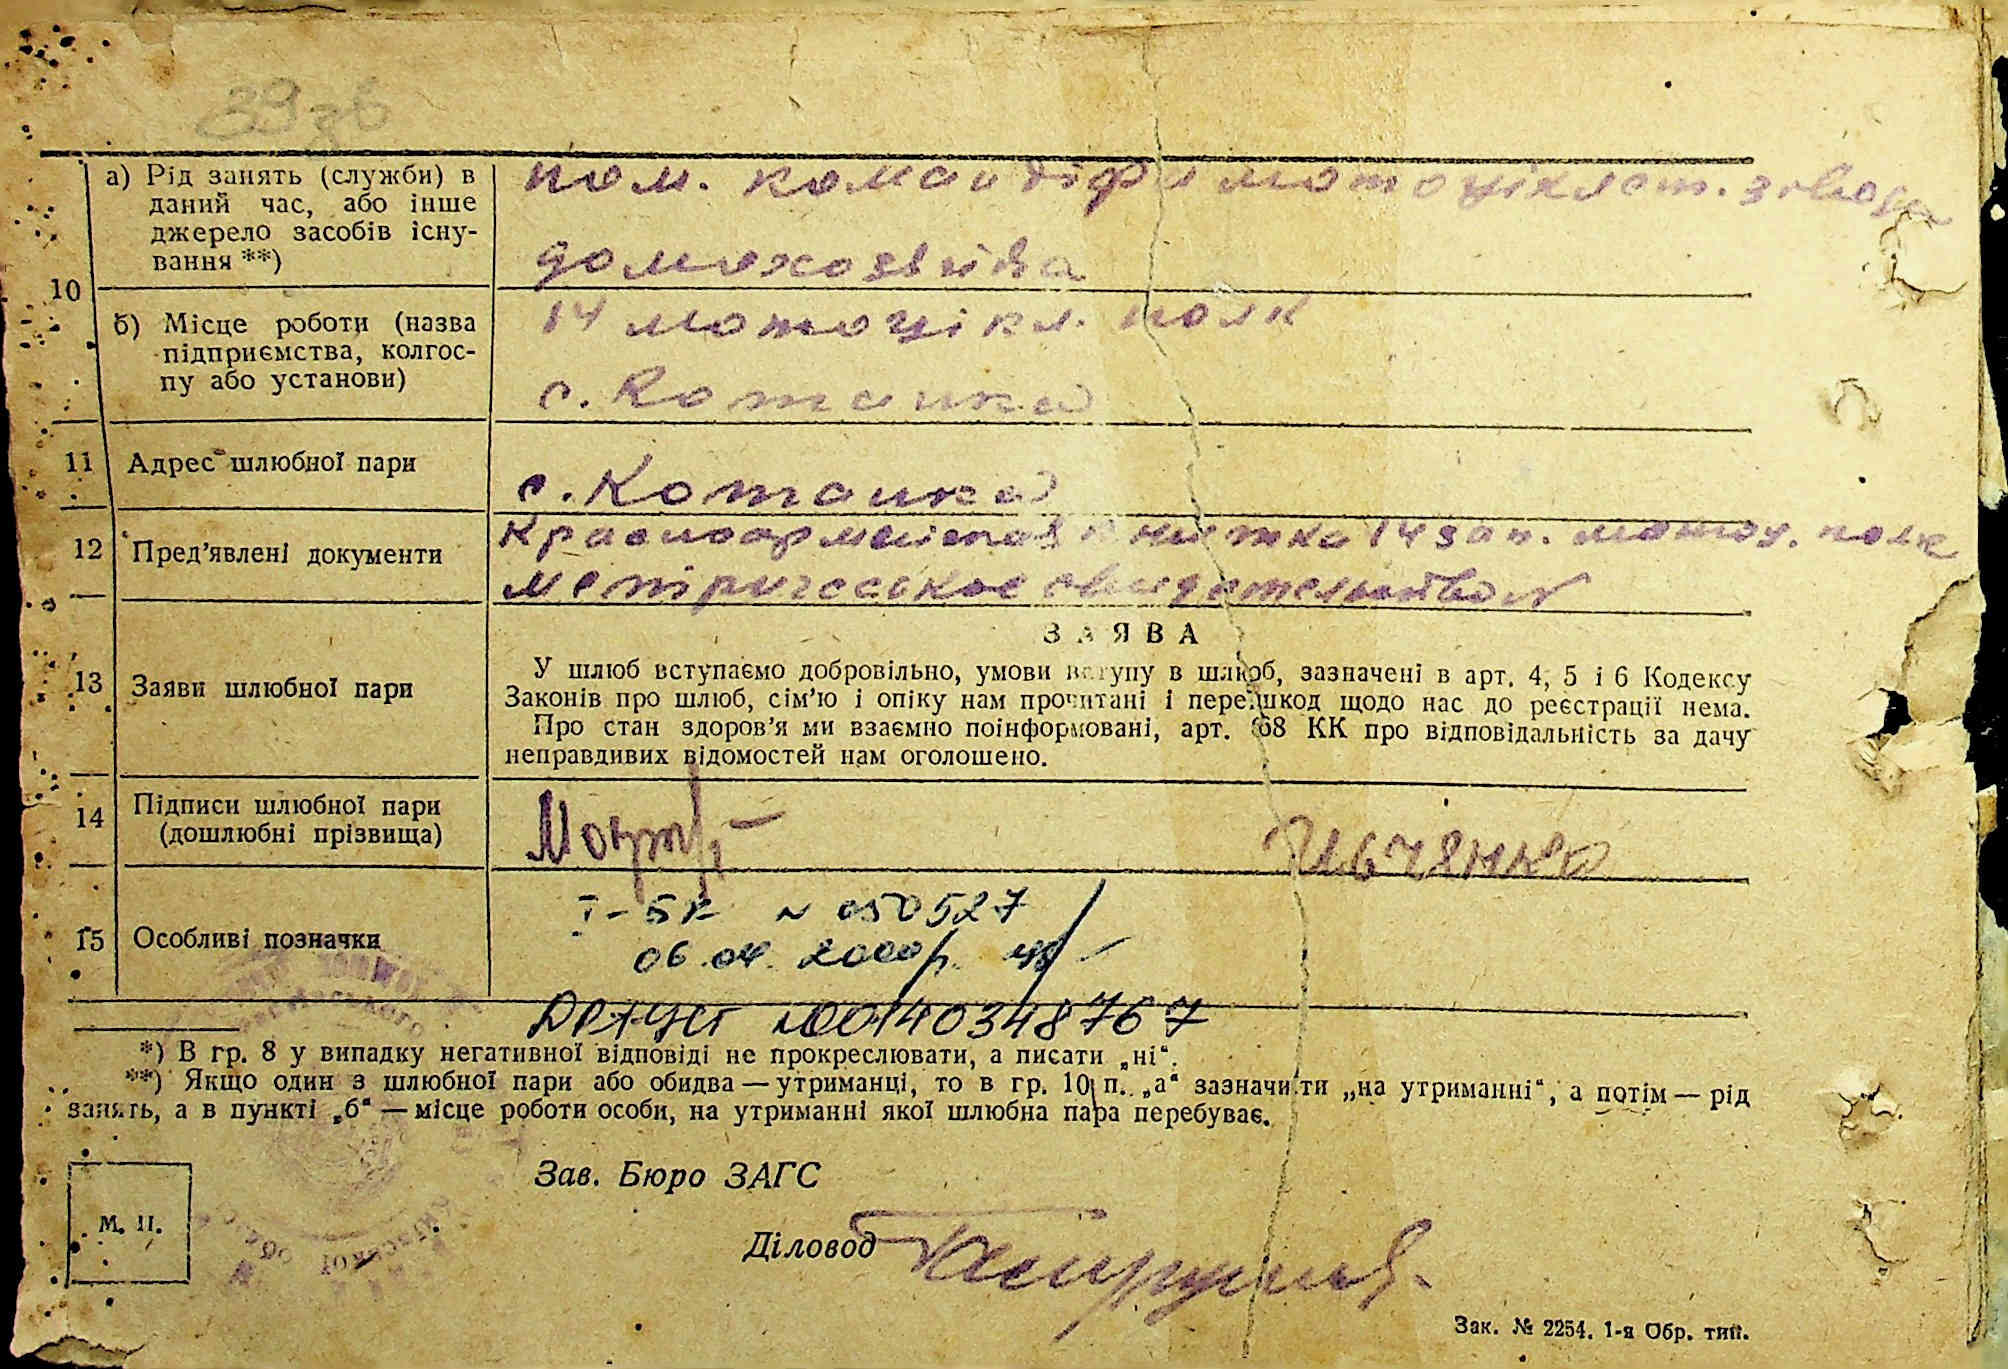 39 зв
10
а) Рід занять (служби) в
даний час, або інше
джерело засобів існу-
вання **)
пом. командіра мотоціклет. звода
домохозяйва
б) Місце роботи (назва
підприємства, колгос-
пу або установи)
14 мотоцікл. полк
с. Котанка
11 Адрес шлюбної пари
с. Котанка
12 Пред'явлені документи
Красноармейская книжка 14 зап. мотоц. полк
метрическое свидетельство
13 Заяви шлюбної пари
ЗАЯВА
У шлюб вступаємо добровільно, умови вступу в шлюб, зазначені в арт. 4, 5 і 6 Кодексу
Законів про шлюб, сім'ю і опіку нам прочитані і перешкод щодо нас до реєстрації нема.
Про стан здоров'я ми взаємно поінформовані, арт. 68 КК про відповідальність за дачу
неправдивих відомостей нам оголошено.
14 Підписи шлюбної пари
(дошлюбні прізвища)
Ильченко
15 Особливі позначки
I-БК № 050527
06.04.2000р.
ДРАЦСГ №00140348767
*) В гр. 8 у випадку негативної відповіді не прокреслювати, а писати „ні“.
**) Якщо один з шлюбної пари або обидва — утриманці, то в гр. 10 п. „а“ зазначити „на утриманні“, а потім — рід
занять, а в пункті „б“ — місце роботи особи, на утриманні якої шлюбна пара перебуває.
Зав. Бюро ЗАГС
М. П.
Діловод
Зак. № 2254. 1-я Обр. тип.